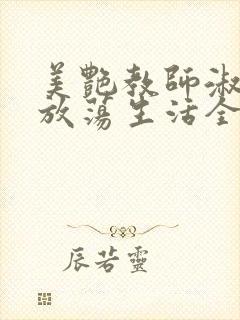 美艷教師淑
放蕩生活全
辰若靈